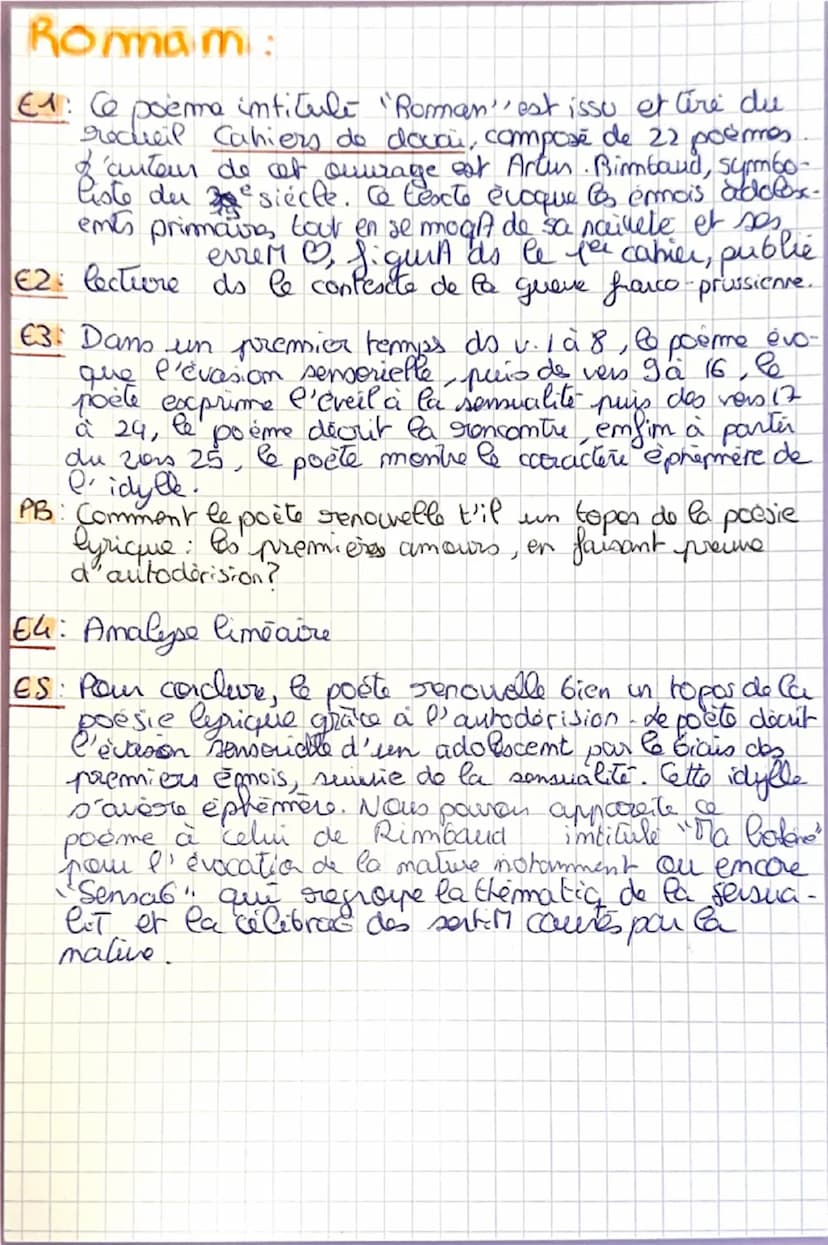 Roman :
E1 : Ce poème intitulé "Roman" est issu et tiré du
recueil Cahiers de douai, composé de 22 poèmes.
L'auteur de cet ouvrage est Artur. Rimbaud, symbo-
liste du siècle. Ce texte évoque les émois adolesc-
ents primaires, tout en se moqA de sa naïveté et ses
figurA ds le 1er cahier, publié
E2 : lecture ds le contexte de la guerre franco-prussienne.
E3 : Dans un premier temps ds v. 1 à 8, le poème évo-
que l'évasion sensorielle, puis des vers 9 à 16, le
poète exprime l'éveil à la sensualité puis des vers 17
à 24, le poème décrit la rencontre, enfin à partir
du vers 25, le poète montre le caractère éphémère de
l'idylle.
PB : Comment le poète renouvelle t'il un topos de la poésie
lyrique : les premières amours, en faisant preuve
d'autodérision?
E4 : Analyse linéaire
E5 : Pour conclure, le poète renouvelle bien un topos de la
poésie lyrique grâce à l'autodérision. Le poète décrit
l'évasion sensorielle d'un adolescent par le biais des
premiers émois, suivie de la sensualité. Cette idylle
s'avère éphémère. Nous pouvons ce
poème à celui de Rimbaud intitulé "Ma bohème"
pour l'évocation de la nature notamment ou encore
qui regroupe la thématiq de la sensua-
liT et la des par la
nature.